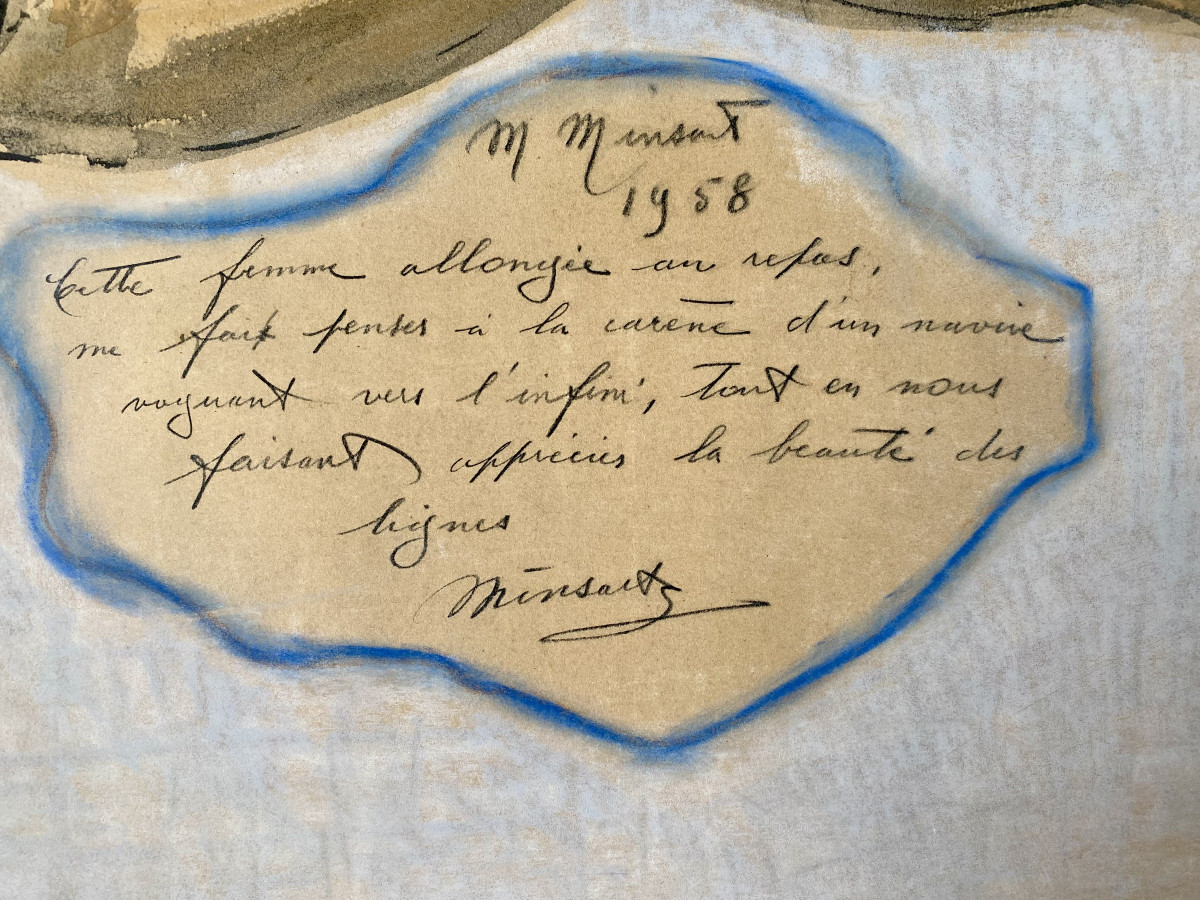 M Minsart
1958
Cette femme allongée au repos,
me fait penser à la carène d'un navire
voguant vers l'infini, tout en nous
faisant apprécier la beauté des
lignes
Minsart